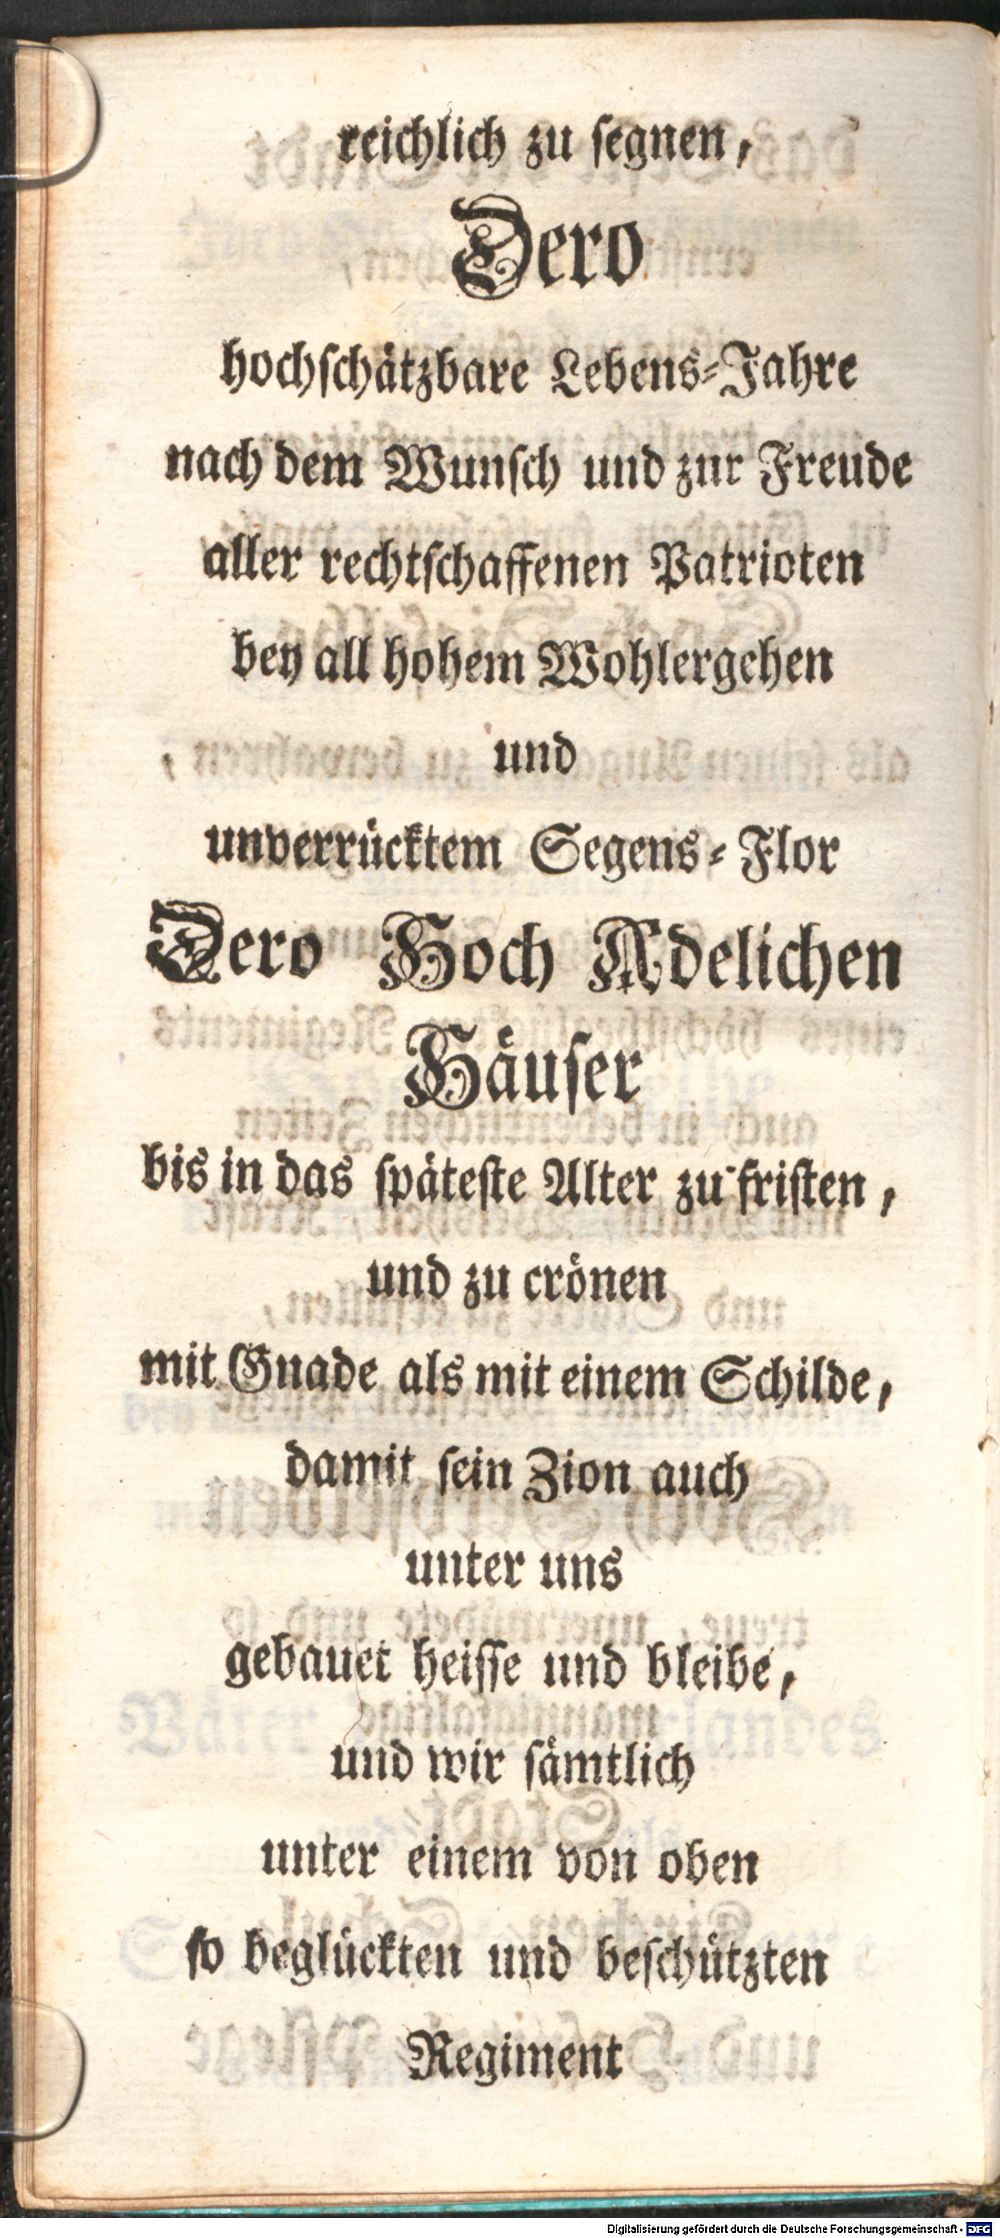 reichlich zu ſegnen,
Dero
hochſchätzbare Lebens-Jahre
nach dem Wunſch und zur Freude
aller rechtſchaffenen Patrioten
bey all hohem Wohlergehen
und
unverrücktem Segens-Flor
Dero Hoch Adelichen
Häuſer
bis in das ſpäteſte Alter zu friſten,
und zu crönen
mit Gnade als mit einem Schilde,
damit ſein Zion auch
unter uns
gebauet heiſſe und bleibe,
und wir ſämtlich
unter einem von oben
ſo beglückten und beſchützten
Regiment
Digitalisierung gefördert durch die Deutsche Forschungsgemeinschaft - DFG